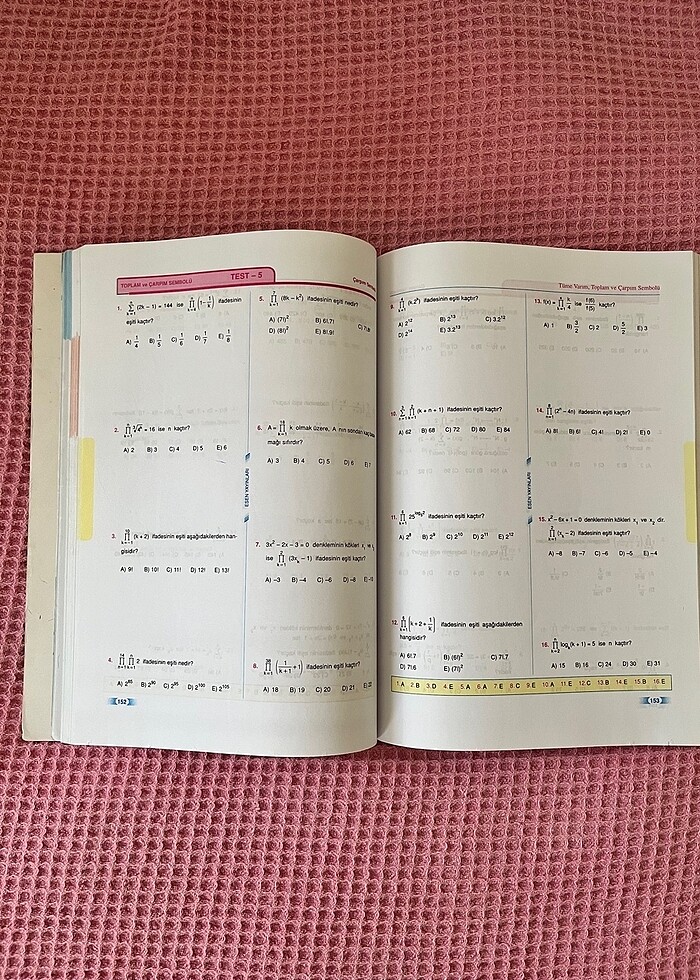 TOPLAM ve ÇARPIM SEMBOLÜ
TEST – 5
1. ∑ (2k – 1) = 144 ise ∏ (1 – 1/k) ifadesinin
eşiti kaçtır?
A) 1/4 B) 1/5 C) 1/6 D) 1/7 E) 1/8
2. = 16 ise n kaçtır?
A) 2 B) 3 C) 4 D) 5 E) 6
3. ∏ (k + 2) ifadesinin eşiti aşağıdakilerden han-
gisidir?
A) 9! B) 10! C) 11! D) 12! E) 13!
4. ∏ ∏ 2 ifadesinin eşiti nedir?
A) 2⁸⁵ B) 2⁹⁰ C) 2⁹⁵ D) 2¹⁰⁰ E) 2¹⁰⁵
152
5. ∏ (8k – k²) ifadesinin eşiti nedir?
A) (7!)² B) 6!.7! C) 7!.8!
D) (8!)² E) 8!.9!
6. A = ∏ k olmak üzere, A nın sondan kaç
mağı sıfırdır?
A) 3 B) 4 C) 5 D) 6 E) 7
7. 3x² – 2x – 3 = 0 denkleminin kökleri x₁
ise ∏ (3xₖ – 1) ifadesinin eşiti kaçtır?
A) –3 B) –4 C) –6 D) –8
8. ∏ (1/(k + 1) + 1) ifadesinin eşiti kaçtır?
A) 18 B) 19 C) 20 D) 21
ESEN YAYINLARI
Tüme Varım, Toplam ve Çarpım Sembolü
9. ∏ (k.2ᵏ) ifadesinin eşiti kaçtır?
A) 2¹² B) 2¹³ C) 3.2¹²
D) 2¹⁴ E) 3.2¹³
10. ∑ ∏ (k + n + 1) ifadesinin eşiti kaçtır?
A) 62 B) 68 C) 72 D) 80 E) 84
11. ifadesinin eşiti kaçtır?
A) 2⁸ B) 2⁹ C) 2¹⁰ D) 2¹¹ E) 2¹²
12. ∏ (k + 2 + 1/k) ifadesinin eşiti aşağıdakilerden
hangisidir?
A) 6!.7 B) (6!)² C) 7!.7
D) 7!.6 E) (7!)²
ESEN YAYINLARI
13. f(x) = ∏ k/4 ise f(6)/f(5) kaçtır?
A) 1 B) 3/2 C) 2 D) 5/2 E) 3
14. ∏ (2ⁿ – 4n) ifadesinin eşiti kaçtır?
A) 8! B) 6! C) 4! D) 2! E) 0
15. x² – 6x + 1 = 0 denkleminin kökleri x₁ ve x₂ dir.
∏ (xₖ – 2) ifadesinin eşiti kaçtır?
A) –8 B) –7 C) –6 D) –5 E) –4
16. (k + 1) = 5 ise n kaçtır?
A) 15 B) 16 C) 24 D) 30 E) 31
1. A 2. B 3. D 4. E 5. A 6. A 7. E 8. C 9. E 10. A 11. E 12. C 13. B 14. E 15. B 16. E
153